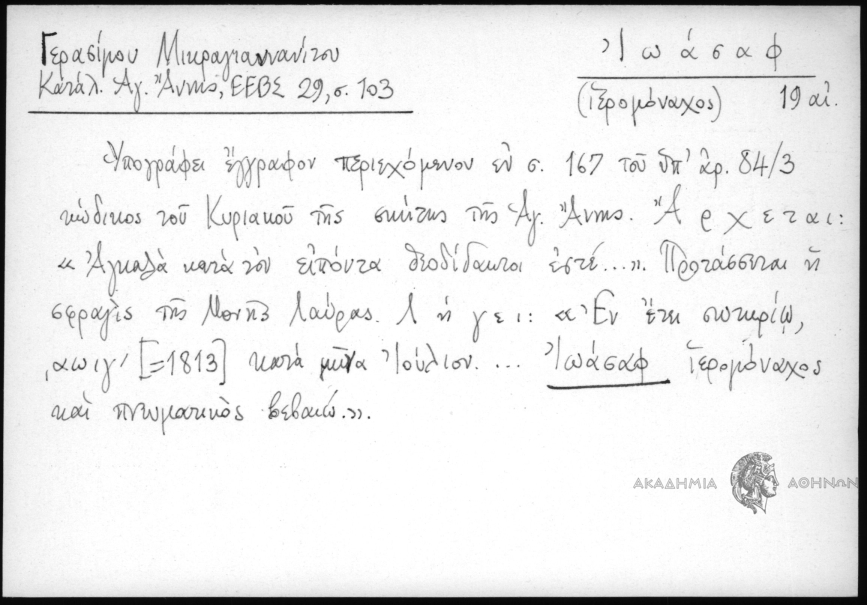 Γερασίμου Μικραγιαννανίτου
Κατάλ. Ἁγ. Ἄννης, ΕΕΒΣ 29, σ. 103
Ἰωάσαφ
(Ἱερομόναχος) 19 αἰ.
Ὑπογράφει ἔγγραφον περιεχόμενον ἐν σ. 167 τοῦ ὑπ' ἀρ. 84/3
κώδικος τοῦ Κυριακοῦ τῆς σκήτης τῆς Ἁγ. Ἄννης. Ἄρχεται:
« κατὰ τὸν εἰπόντα θεοδίδακτοι ἐστέ...». Προτάσσεται ἡ
σφραγὶς τῆς Μονῆς Λαύρας. Λήγει: «Ἐν ἔτει σωτηρίῳ,
͵αωιγ' [=1813] κατὰ μῆνα Ἰούλιον. ... Ἰωάσαφ Ἱερομόναχος
καὶ πνευματικὸς βεβαιῶ.».
ΑΚΑΔΗΜΙΑ ΑΘΗΝΩΝ